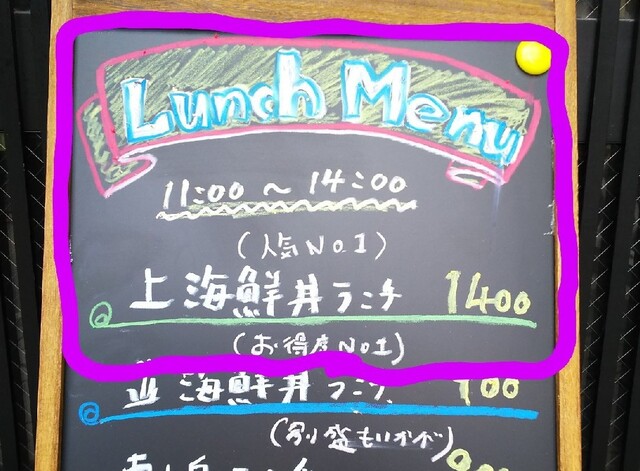 Lunch Menu
11:00 ~ 14:00
(人気No.1)
上海鮮丼ランチ 1400
(お得度No1)
並海鮮丼ランチ